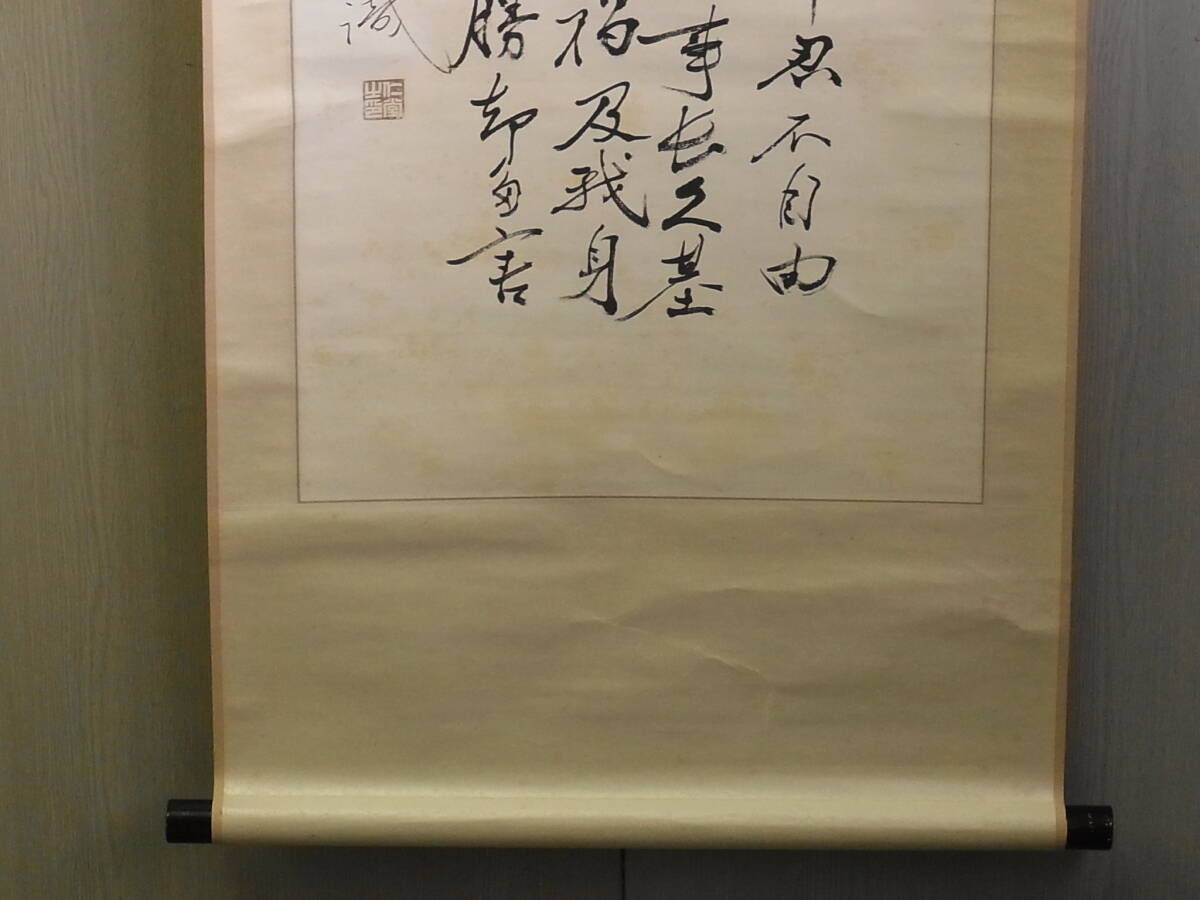 忍不自由
事長久基
禍及我身
勝却多害
識